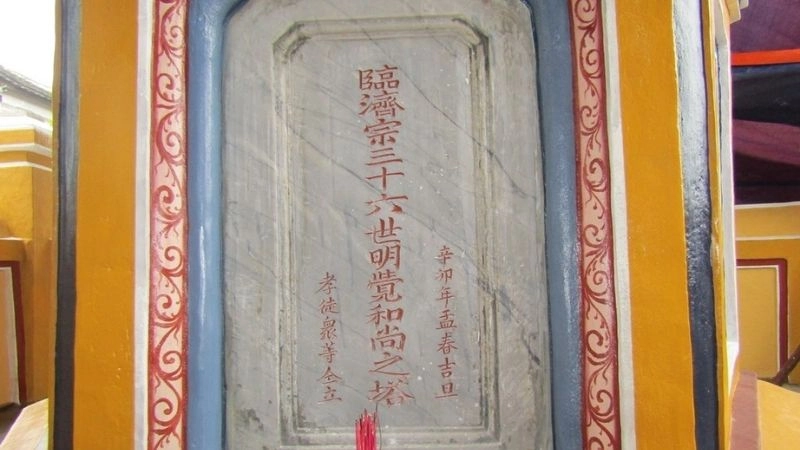 辛卯年孟春吉旦
臨濟宗三十六世明覺和尚之塔
孝徒眾等仝立